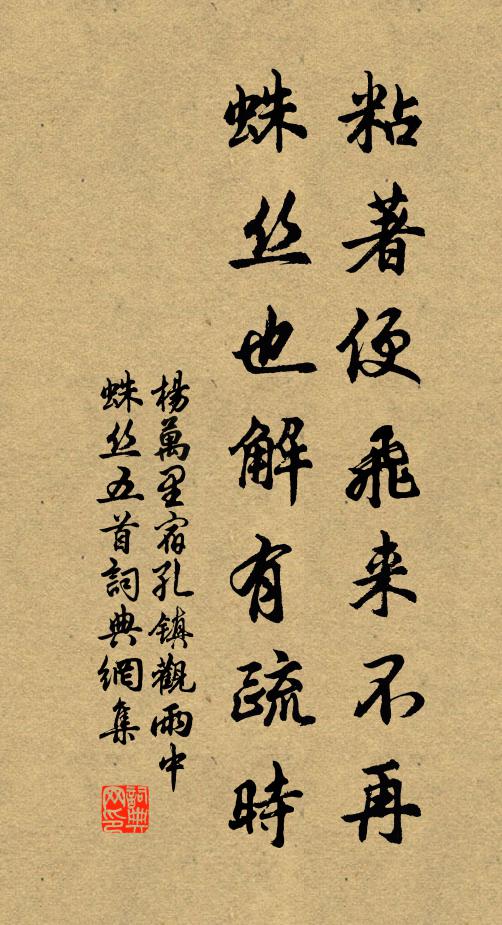 粘著便飛来不再
蛛丝也解有疏時
楊萬里宿孔鎮觀雨中
蛛丝五首詞典網集
詞典網印